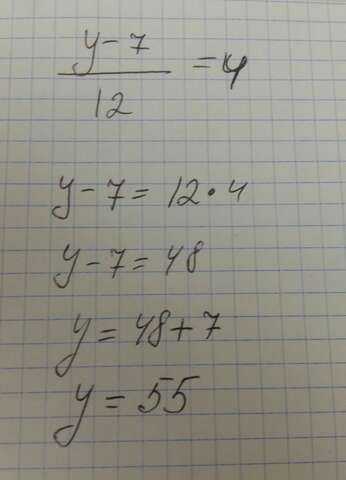 y-7
12
=4
y-7=12·4
y-7=48
y=48+7
y=55